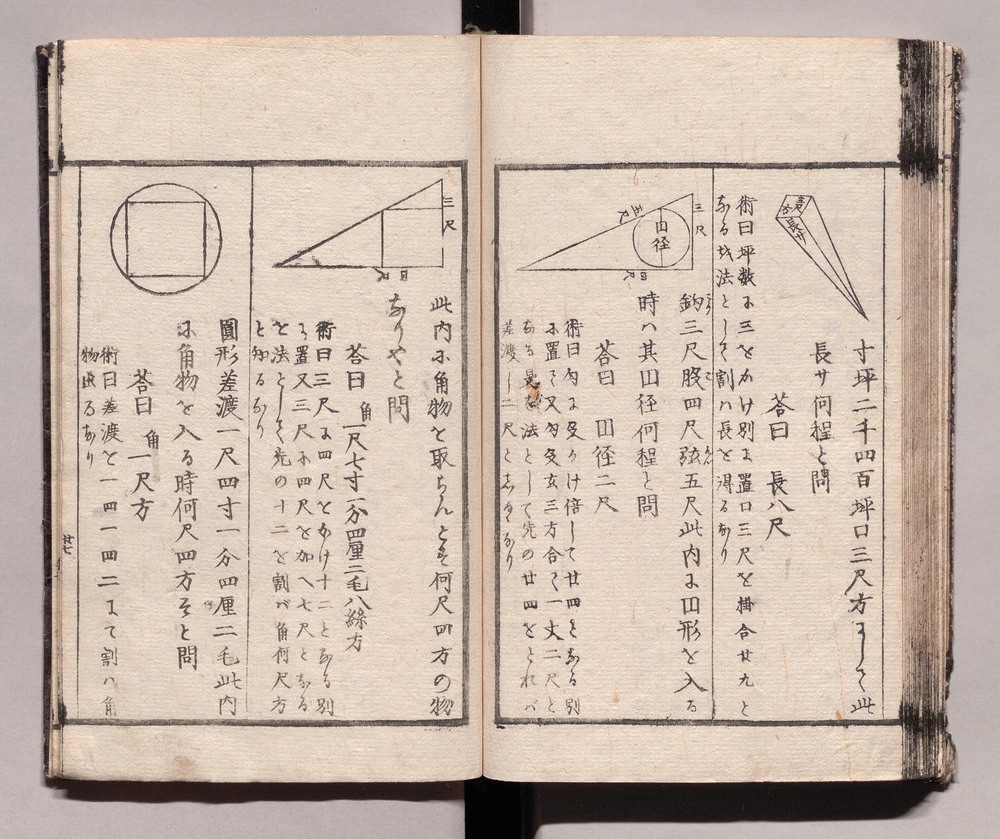 寸坪二千四百坪口三尺方にして此
長サ何程と問
答曰 長八尺
術曰坪数に三をかけ別に置口三尺を掛合せ九と
なる是を法として割ハ長を得るなり
長サ
三尺
五尺
四尺
円径
鈎三尺股四尺弦五尺此内に円形を入る
時ハ其円径何程と問
答曰 円径二尺
術曰勾に殳をかけ倍して廿四となる別
に置て勾殳玄三方合て一丈二尺と
なる是を法として先の廿四をとれバ
差渡し二尺としるなり
三尺
四尺
此内に角物を取らんとす何尺四方の物
なりやと問
答曰 角一尺七寸一分四厘二毛八絲方
術曰三尺に四尺をかけ十二となる別
に置又三尺に四尺を加へ七尺となる
を法として先の十二を割バ角何尺方
と知るなり
圓形差渡一尺四寸一分四厘二毛此内
に角物を入る時何尺四方そと問
答曰 角一尺方
術曰差渡を一四一四二にて割ハ角
物成るなり
廿七